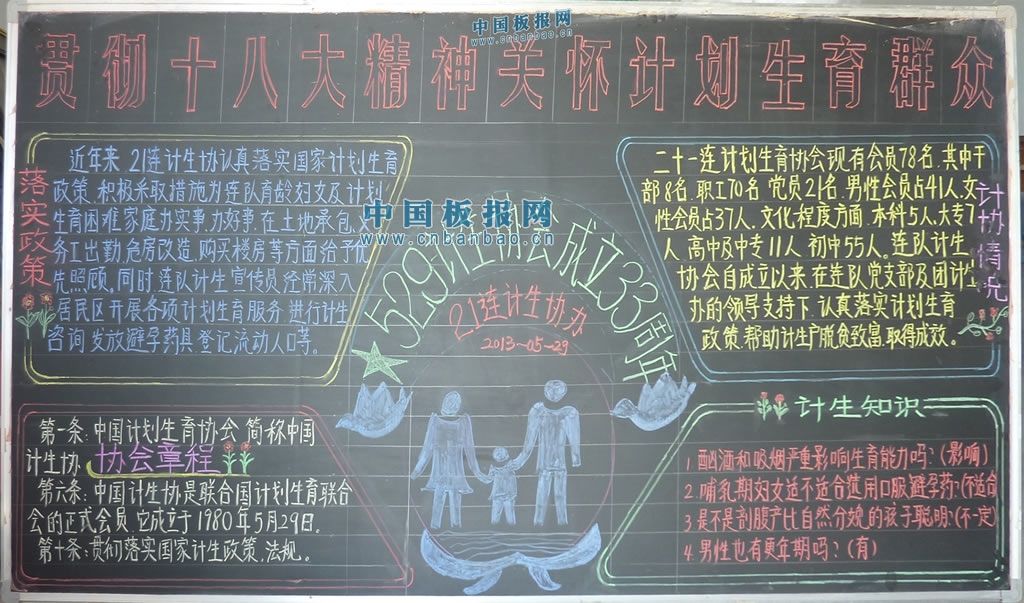 中国板报网
www.cnbanbao.cn
贯彻十八大精神关怀计划生育群众
落实政策
近年来21连计生协认真落实国家计划生育
政策.积极采取措施为连队育龄妇女及计划
生育困难家庭办实事,办好事.在土地承包、
务工出勤.危房改造.购买楼房等方面给予优
先照顾.同时连队计生宣传员经常深入
居民区开展各项计划生育服务.进行计生
咨询.发放避孕药具.登记流动人口等。
中国板报网
www.cnbanbao.cn
529计生协会成立33周年
21连计生协办
2013-05-29
计协情况
二十一连计划生育协会现有会员78名.其中干
部8名.职工70名.党员21名.男性会员占41人.女
性会员占37人.文化程度方面.本科5人.大专7
人.高中及中专11人.初中55人。连队计生
协会自成立以来.在连队党支部及团计生
办的领导支持下.认真落实计划生育
政策.帮助计生户脱贫致富.取得成效。
第一条:中国计划生育协会.简称中国
计生协.
协会章程
第六条:中国计生协是联合国计划生育联合
会的正式会员.它成立于1980年5月29日。
第十条:贯彻落实国家计生政策.法规。
计生知识
1.酗酒和吸烟严重影响生育能力吗?(影响)
2.哺乳期妇女适不适合选用口服避孕药?(不适合)
3.是不是剖腹产比自然分娩的孩子聪明?(不一定)
4.男性也有更年期吗?(有)